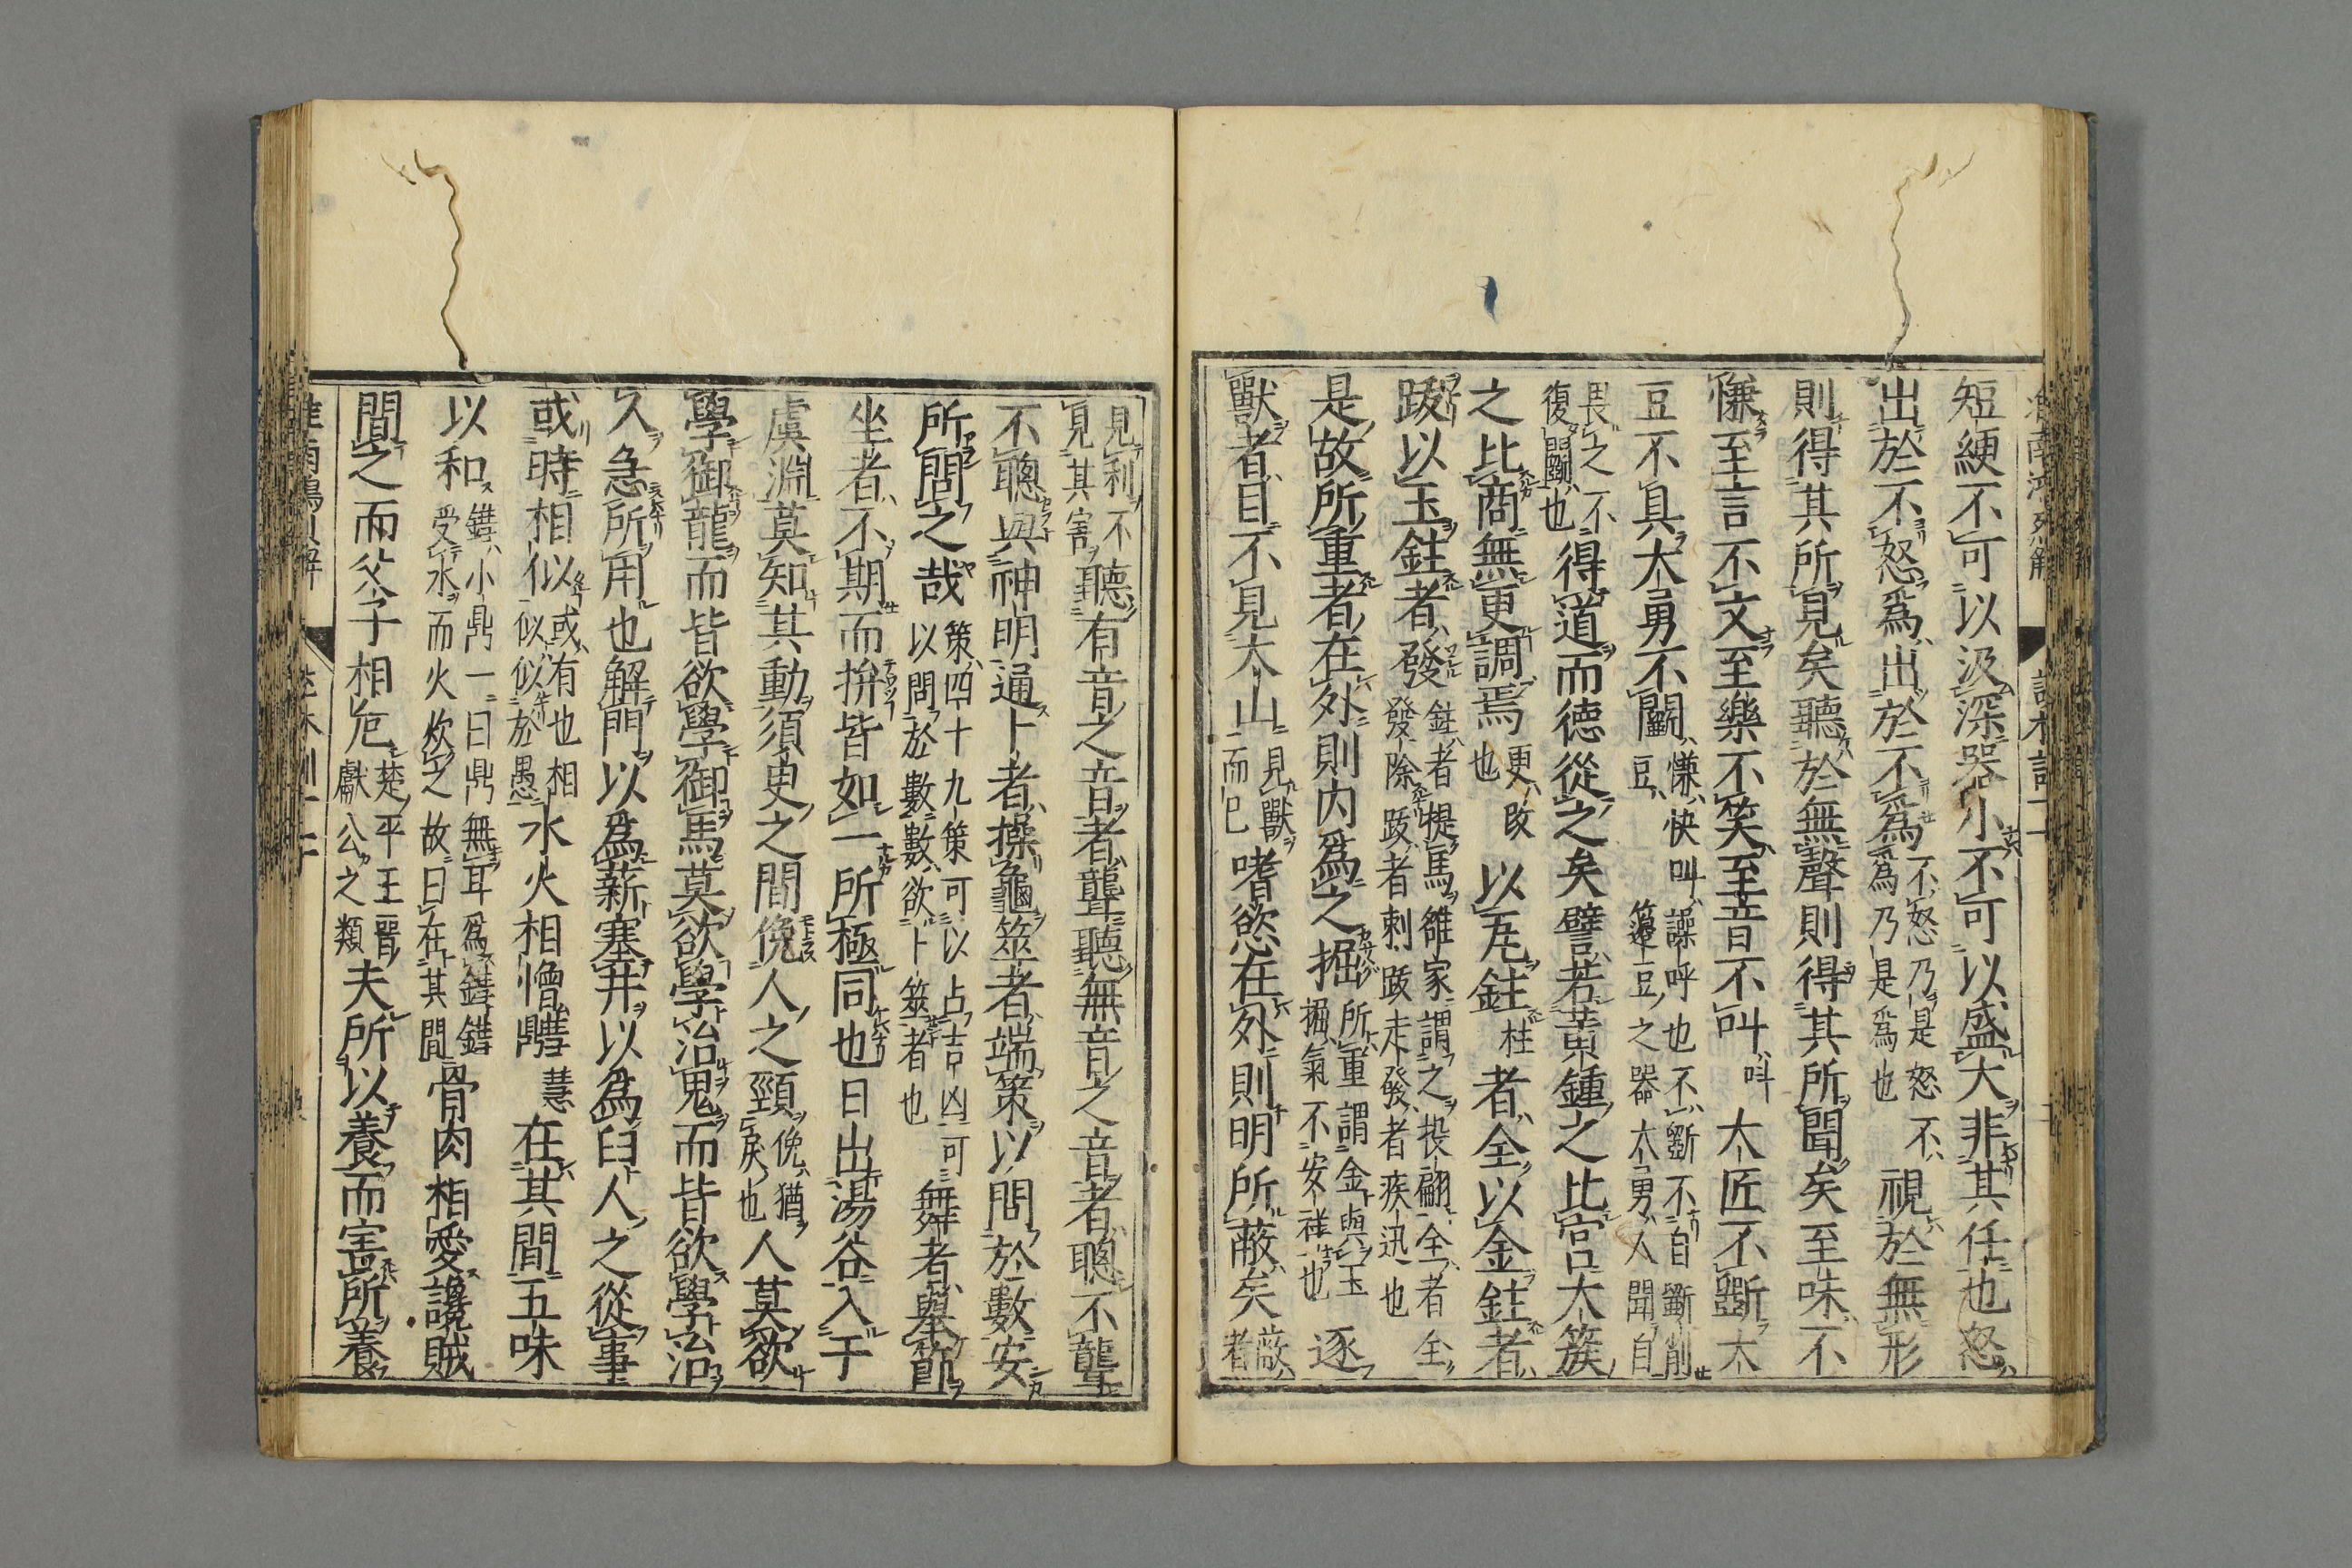 短綆不可以汲深器小不可以盛大非其任也怒
出於不怒爲出於不爲不怒乃是怒不爲乃是爲也視於無形
則得其所見矣聽於無聲則得其所聞矣至味不
慊至言不文至樂不笑至音不叫叫大匠不斲大
豆不具大勇不鬭慊快叫譟呼也不斲不自斲削豆籩豆之器大勇人聞自
畏之不復鬭也得道而德從之矣譬若黄鍾之比宫太簇
之比商無更調焉更改也以瓦鉒柱者全以金鉒者
跋以玉鉒者發鉒者提馬雒家謂之投翩全者全發除跋者刺跋走發者疾迅也
是故所重者在外則内爲之掘所重謂金與玉掘氣不安祥也逐
獸者目不見太山見獸而已嗜慾在外則明所蔽矣蔽者
見利不見其害聽有音之音者聾聽無音之音者聰不聾
不聰與神明通卜者操龜筮者端策以問於數安
所問之哉策四十九策可以占吉凶可以問於數數欲卜筮者也舞者擧節
坐者不期而拚皆如一所極同也日出湯谷入于
虞淵莫知其動須臾之間俛人之頸俛猶戾也人莫欲
學御龍而皆欲學御馬莫欲學治鬼而皆欲學治
人急所用也解門以爲薪塞井以爲臼人之從事
或時相似或有也相似似於愚水火相憎䥶慧在其間五味
以和䥶小鼎一曰鼎無耳爲䥶䥶受水而火炊之故曰在其間骨肉相愛讒賊
間之而父子相危楚平王晋獻公之類夫所以養而害所養